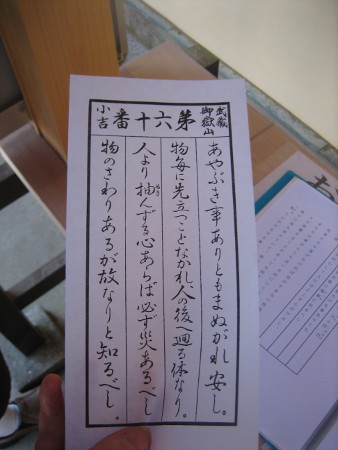 武蔵
御嶽山
第六十番
小吉
あやぶき事ありともまぬがれ安し。
物毎に先立つことなかれ、人の後へ廻る体なり。
人より抽んずる心あらば必ず災あるべし
物のさわりあるが故なりと知るべし。